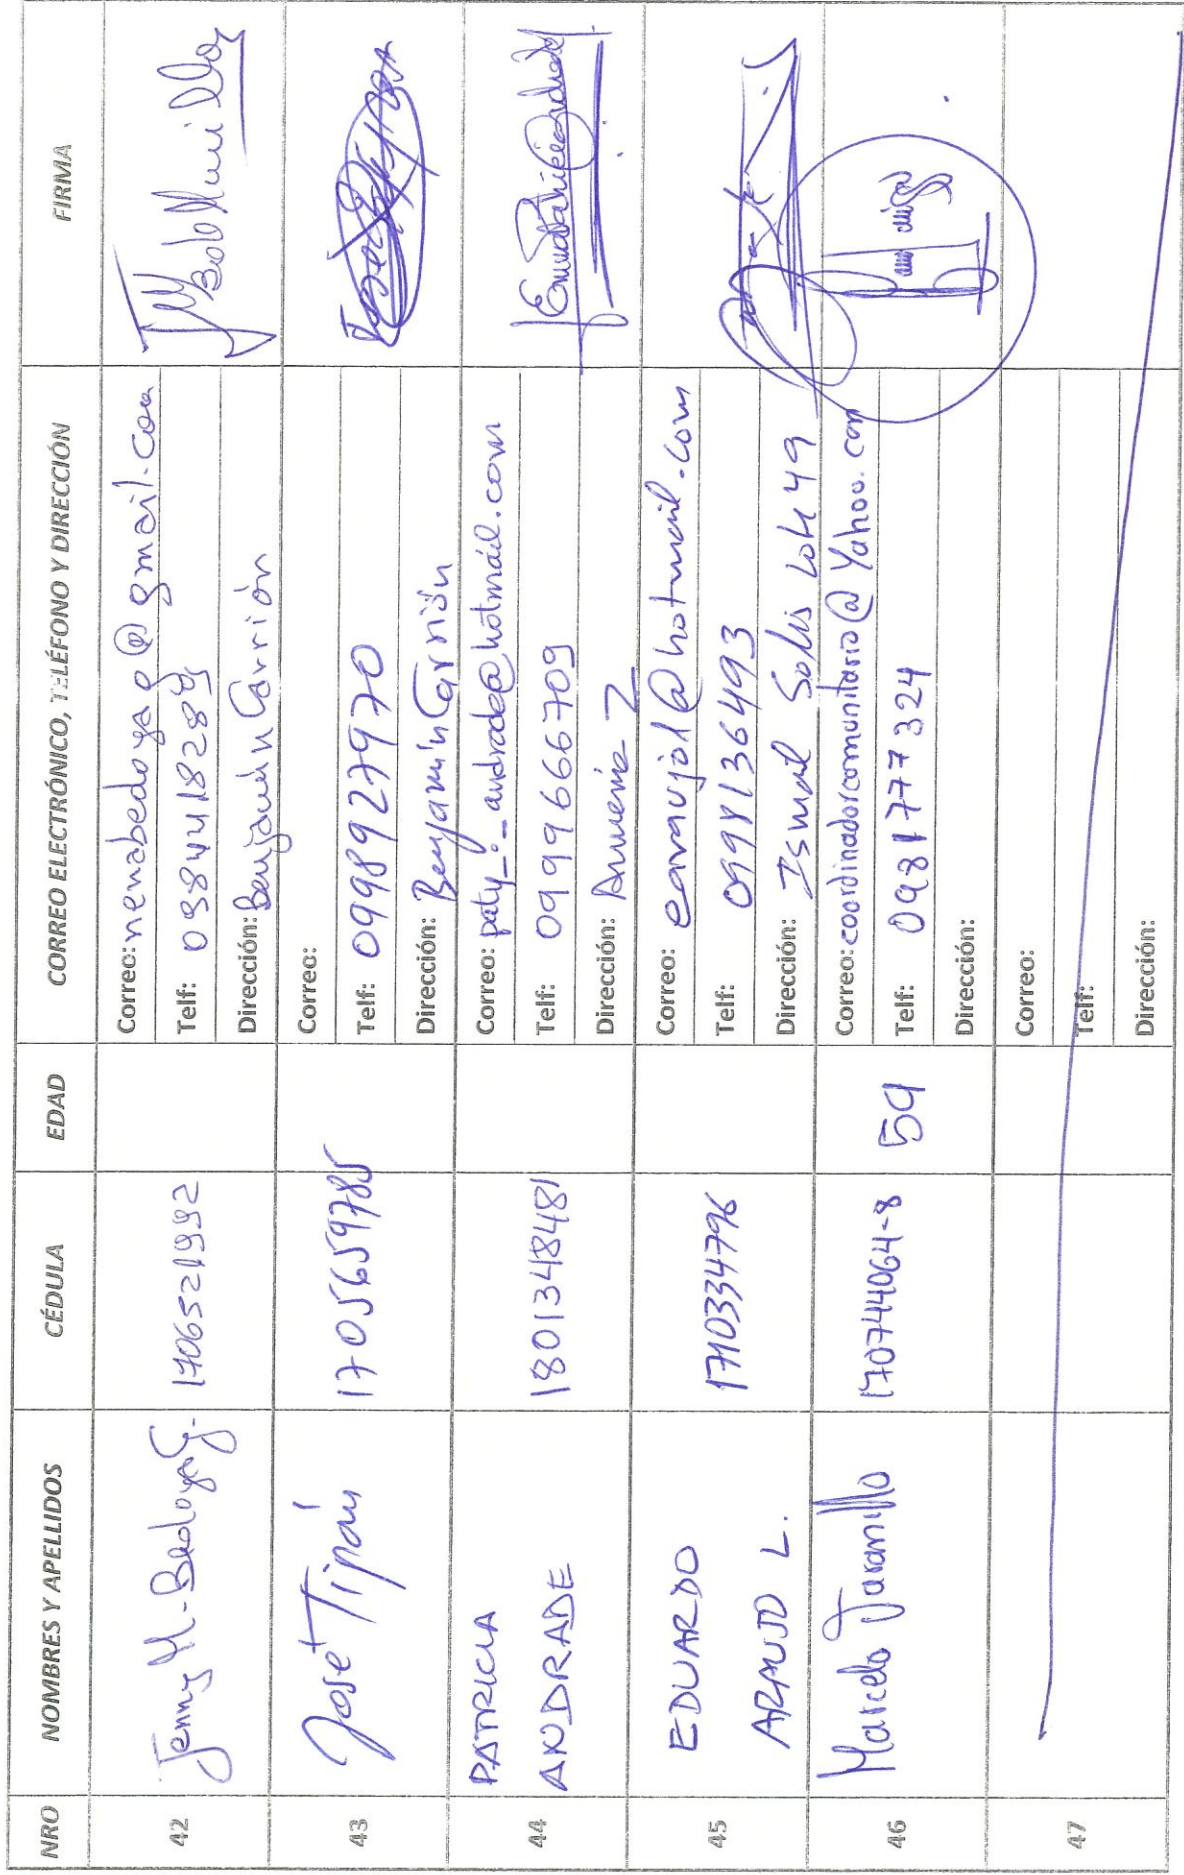 NRO NOMBRES Y APELLIDOS CÉDULA EDAD CORREO ELECTRÓNICO, TELÉFONO Y DIRECCIÓN FIRMA
42
Jenny M. Bedoya G.
1706521992
Correo: nenabedoyag@gmail.com
Telf: 0984418289
Dirección: Benjamín Carrión
43
José Tipán
1705659785
Correo:
Telf: 0998927970
Dirección: Benjamín Carrión
44
PATRICIA
ANDRADE
1801348481
Correo: paty_-_andrade@hotmail.com
Telf: 0999666709
Dirección: Armenia 2
45
EDUARDO
ARAUJO L.
1710334796
Correo: earaujol@hotmail.com
Telf: 0998136493
Dirección: Ismael Solis Lote 49
46
Marcelo Jaramillo
170744064-8
59
Correo: coordinadorcomunitario@Yahoo.com
Telf: 0981777324
Dirección:
47
Correo:
Telf:
Dirección: